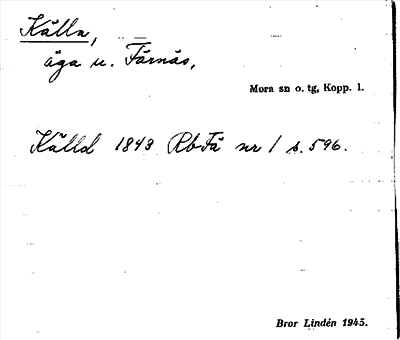 Källa,
äga u. Färnäs,
Mora sn o. tg, Kopp. l.
Källd 1843 RbFä nr 1 s. 596.
Bror Lindén 1945.